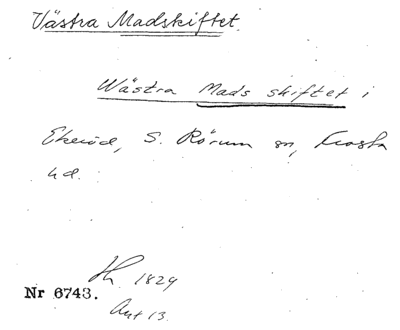 Västra Madskiftet.
Wästra Mads skiftet i
Ekeröd, S. Rörum sn, Frosta
hd.
Hh. 1829
Nr 6743.
Akt 13.